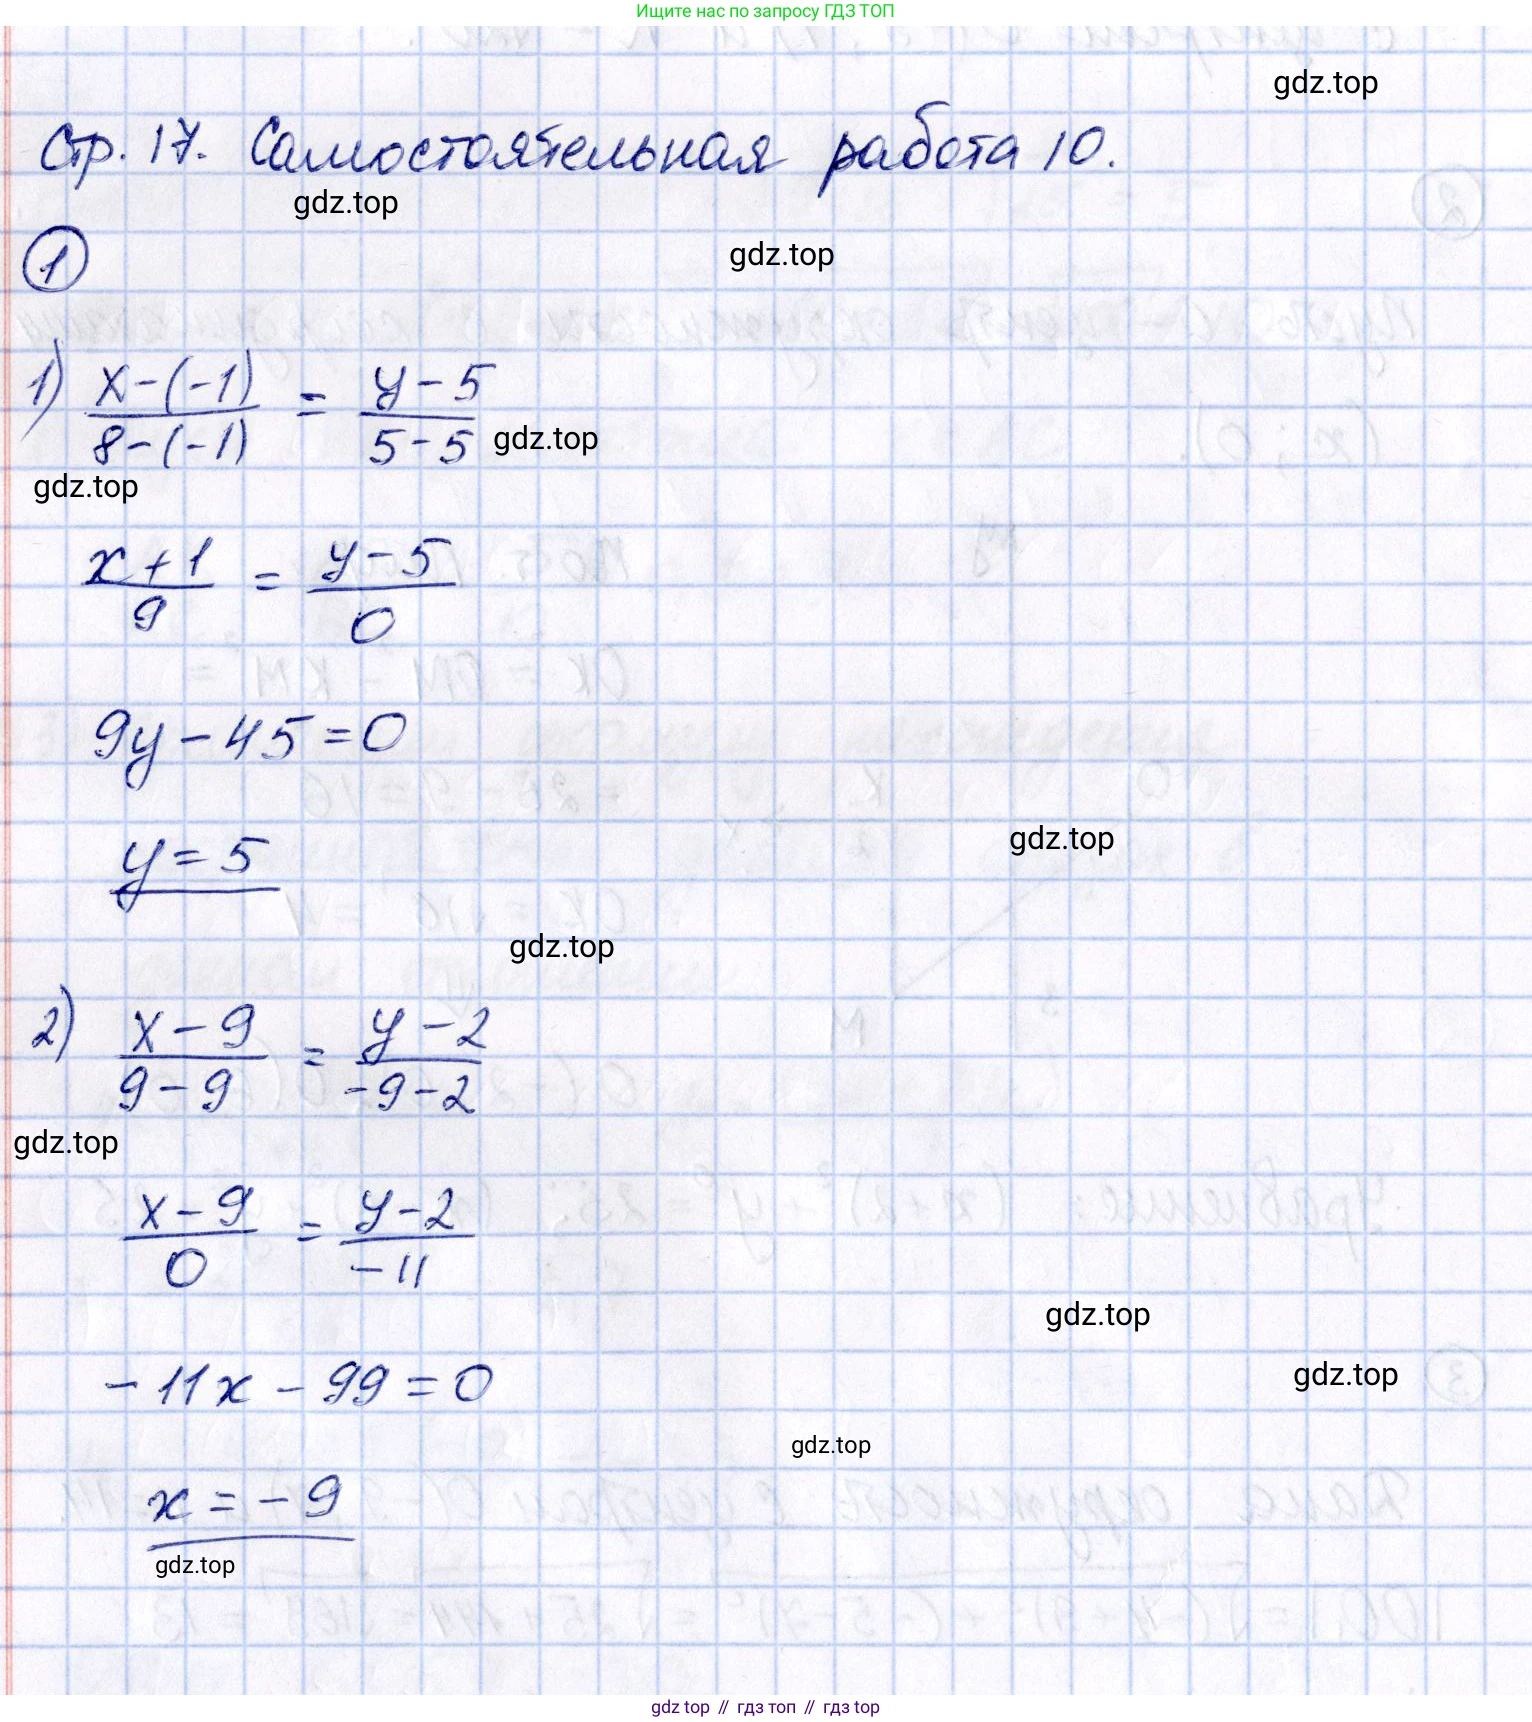 Ищите нас по запросу ГДЗ ТОП
gdz.top
Стр. 17. Самостоятельная работа 10.
gdz.top
1
gdz.top
1) x-(-1) / 8-(-1) = y-5 / 5-5
gdz.top
gdz.top
x+1 / 9 = y-5 / 0
9y-45=0
gdz.top
y=5
gdz.top
2) x-9 / 9-9 = y-2 / -9-2
gdz.top
x-9 / 0 = y-2 / -11
gdz.top
-11x-99=0
gdz.top
gdz.top
x=-9
gdz.top
gdz top // гдз топ // гдз top